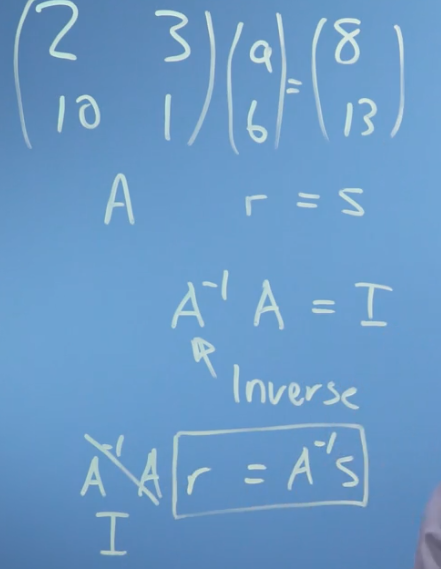 (2 3) (a) = (8)
(10 1) (b) (13)
A r = s
A⁻¹ A = I
Inverse
A⁻¹ A r = A⁻¹ s
I